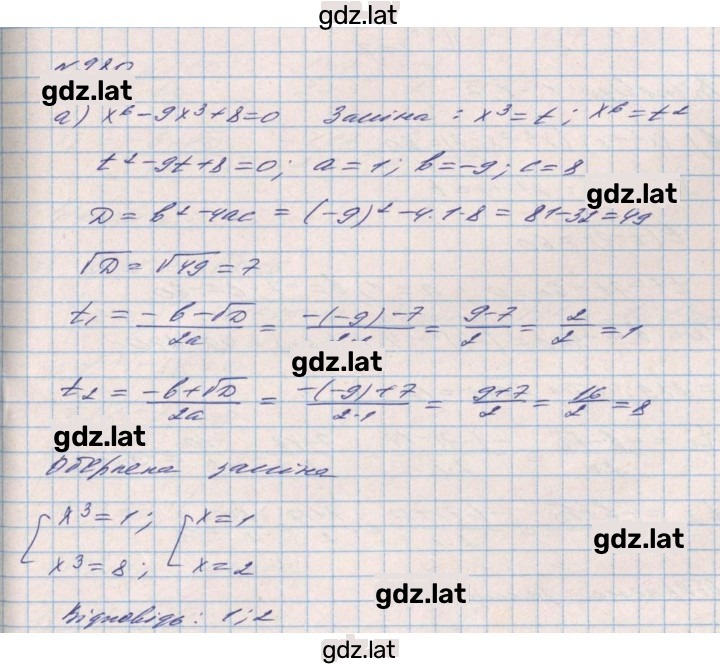 gdz.lat
gdz.lat
а) x⁶-9x³+8=0 Заміна : x³=t; x⁶=t²
t²-9t+8=0; a=1; b=-9; c=8
gdz.lat
D=b²-4ac = (-9)²-4·1·8 = 81-32=49
√D=√49=7
t₁ = (-b-√D)/2a = (-(-9)-7)/2·1 = (9-7)/2 = 2/2 =1
gdz.lat
t₂ = (-b+√D)/2a = (-(-9)+7)/2·1 = (9+7)/2 = 16/2 =8
gdz.lat
Обернена заміна
[x³=1; [x=1
x³=8; x=2
gdz.lat
gdz.lat
Відповідь: 1;2
gdz.lat